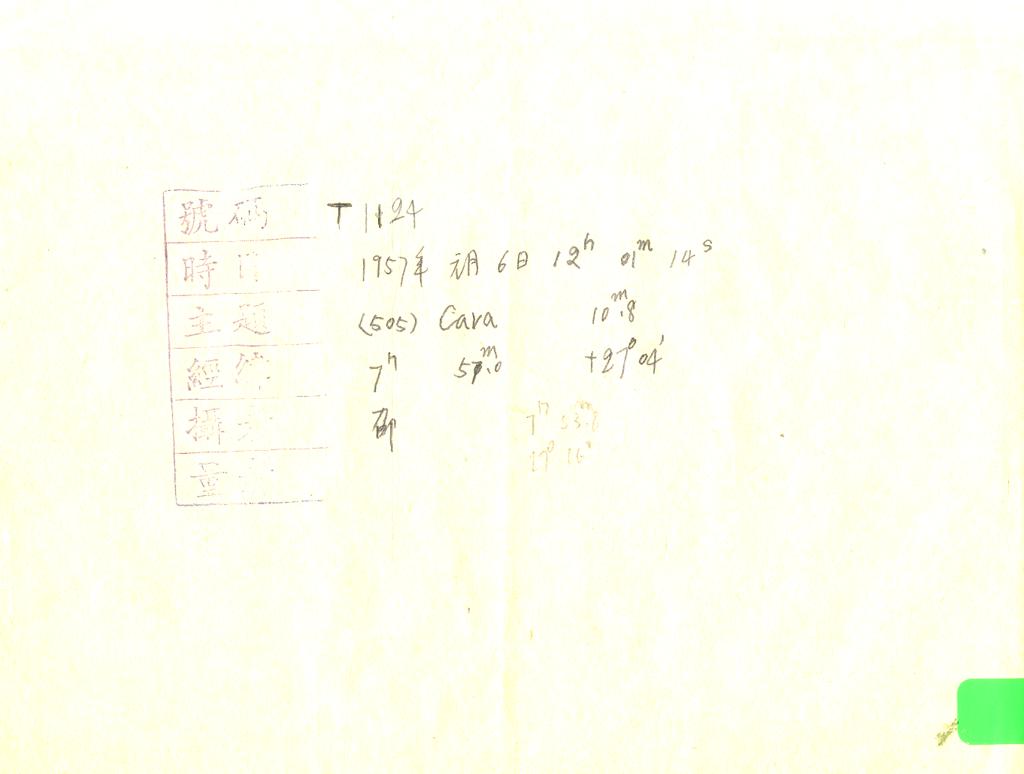 號碼 T 1124
時日 1957年 元月 6日 12h 01m 14s
主題 (505) Cava 10m.8
經緯 7h 57m.0 +27° 04'
攝 邵
7h 53m.6
量
27° 16'